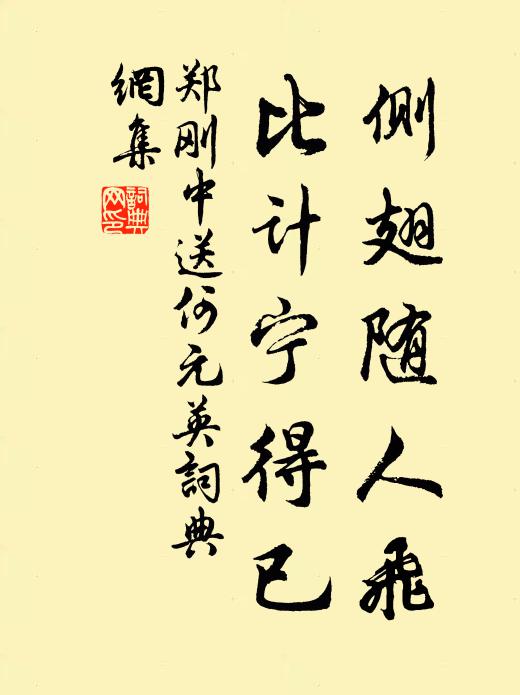 侧翅随人飛
比计宁得已
郑刚中送何元英詞典
網集
詞典
网印